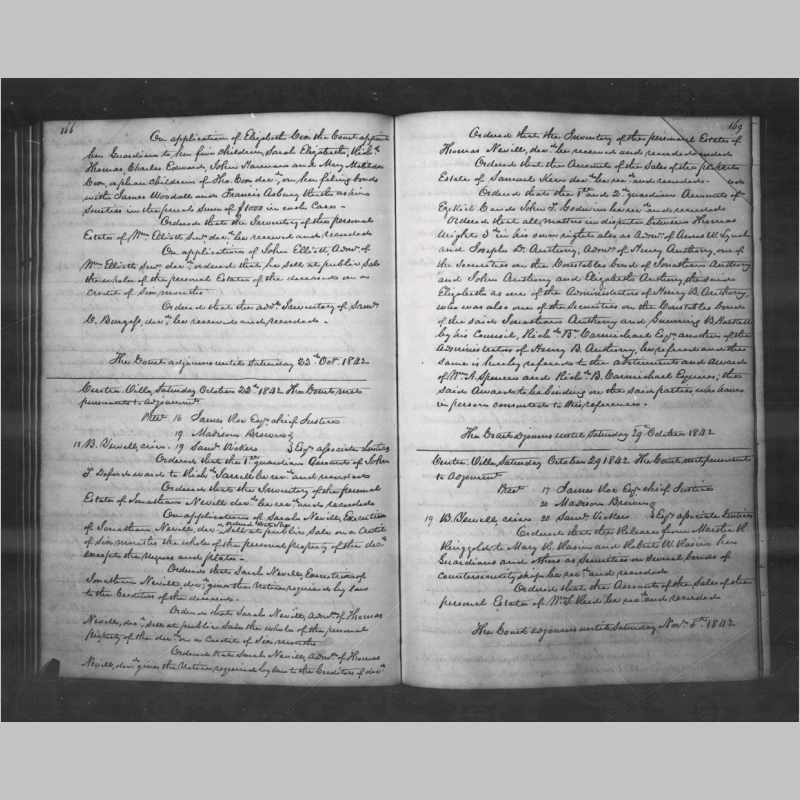 166
On application of Elizabeth Cox the Court appoint
her Guardian to her five children, Sarah Elizabeth, Rich.d
Thomas, Charles Edward, John Harman and Mary Matilda
Cox, orphan children of Tho. Cox dec.d on her filing bonds
with James Woodall and Francis Asbury as her
Sureties in the penal Sum of $1000 in each Case.
Ordered that the Inventory of the personal
Estate of Wm. Elliott Senr. dec.d be received and recorded
On application of John Elliott, Admr. of
Wm. Elliott Senr. dec.d ordered that he sell at public sale
the whole of the personal Estate of the deceased on a
credit of Six months
Ordered that the add.l Inventory of Saml.
G. Burgess, dec.d be received and recorded.
The Court adjourns until Saturday 22.d Oct. 1842
Centre Ville, Saturday October 22.d 1842 The Court meets
pursuant to adjournment
Pres.t 16 James Roe Esq. chief Justice
19 Madison Brown
18 B. Newell, crier. 19 Saml. Vickers } Esqs. associate Justices
Ordered that the 1st guardian Accounts of John
T. Deford ward to Rich.d Jarrell be rec.d and recorded
Ordered that the Inventory of the personal
Estate of Jonathan Nevill dec.d be rec.d and recorded
On application of Sarah Nevill, Executrix
of Jonathan Nevill, dec.d ordered that She
Sell at public sale on a credit
of Six months the whole of the personal property of the dec.d
except the Negroes and plate.
Ordered that Sarah Nevill, Executrix of
Jonathan Nevill, dec.d give the Notice required by law
to the Creditors of the deceased.
Ordered that Sarah Nevill, Admx. of Thomas
Nevill, dec.d sell at public sale the whole of the personal
property of the dec.d on a Credit of Six months
Ordered that Sarah Nevill, Admx. of Thomas
Nevill, dec.d give the Notice required by law to the Creditors of dec.d
169
Ordered that the Inventory of the personal Estate of
Thomas Nevill, dec.d be received and recorded
Ordered that the Account of the Sales of the
Estate of Samuel Kerr dec.d be rec.d and recorded.
Ordered that the 1st and 2nd guardian Accounts of
Ezekiel C and John T. Godwin be rec.d and recorded
Ordered that all matters in dispute between Thomas
Wright 3.d in his own right also as Admr. of Anne W. Lynch
and Joseph D. Anthony, Admr. of Henry Anthony, one of
the Securities on the Constables bond of Jonathan Anthony
and John Anthony and Elizabeth Anthony the said
Elizabeth as one of the Administrators of Henry B. Anthony,
who was also one of the Securities on the Constables bond
of the said Jonathan Anthony and
by his Council, Rich.d B. Carmichael Esqr. another of the
Administrators of Henry B. Anthony, be referred and the
same is hereby referred to the arbitrament and award
of Wm. A. Spencer and Rich.d B. Carmichael Esquires; the
said Award to be binding on the said parties who have
in person consented to this reference.
The Court adjourns until Saturday 29th October 1842
Centre Ville, Saturday October 29 1842 The Court met pursuant
to Adjournment
Pres.t 17 James Roe Esq. chief Justice
20 Madison Brown
19 B. Newell, crier 20 Saml. Vickers } Esqs. associate Justices
Ordered that the Release from Martha R.
Ringgold to Mary R. Wasson and Robert W. Wasson her
Guardians and others as Securities on several bonds of
countersecurityship be rec.d and recorded
Ordered that the Account of the Sale of the
personal Estate of Wm. S. Reed be rec.d and recorded
The Court adjourns until Saturday Novr. 5th 1842